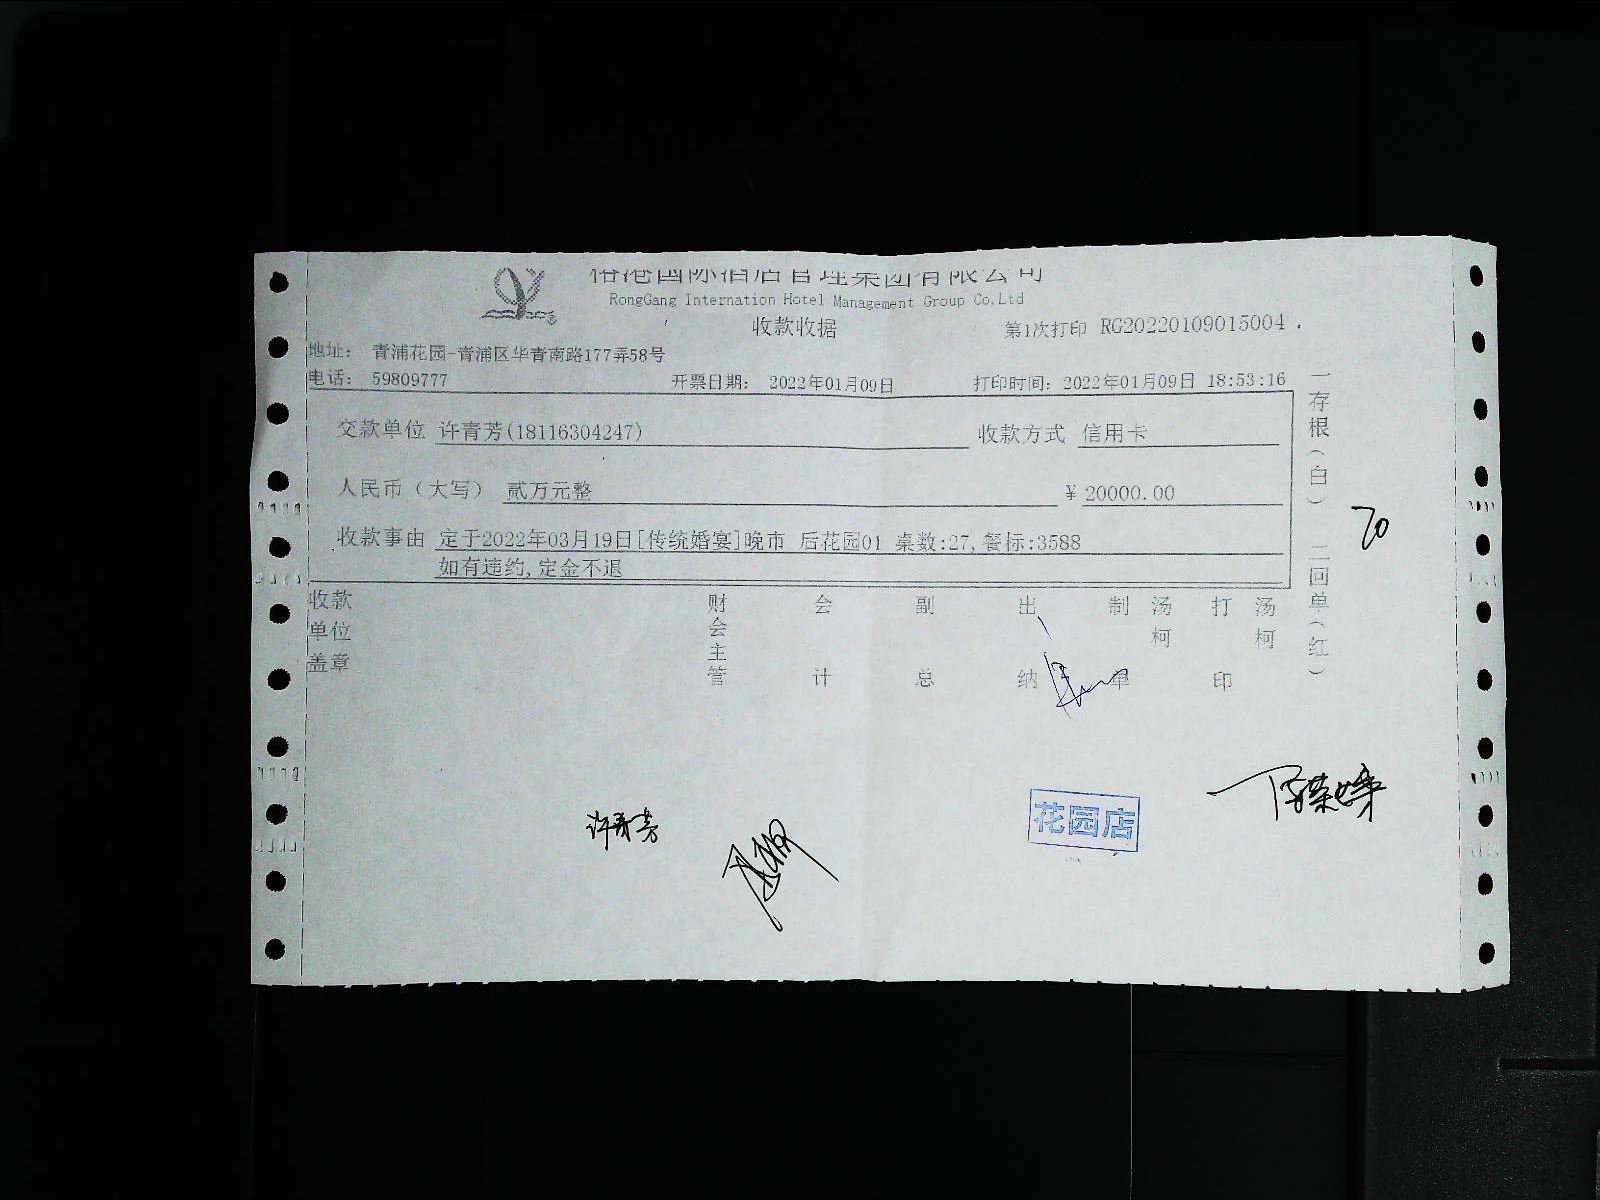 国际酒店管理集团有限公司
RongGang Internation Hotel Management Group Co.Ltd
收款收据
第1次打印 RG20220109015004
地址： 青浦花园-青浦区华青南路177弄58号
电话： 59809777
开票日期： 2022年01月09日
打印时间：2022年01月09日 18:53:16
交款单位 许青芳(18116304247)
收款方式 信用卡
人民币（大写） 贰万元整
¥ 20000.00
收款事由 定于2022年03月19日[传统婚宴]晚市 后花园01 桌数:27,餐标:3588
如有违约,定金不退
收款单位盖章
财会主管
会计
副总
出纳
制单
汤柯
打印
汤柯
一存根（白） 二回单（红）
许青芳
花园店